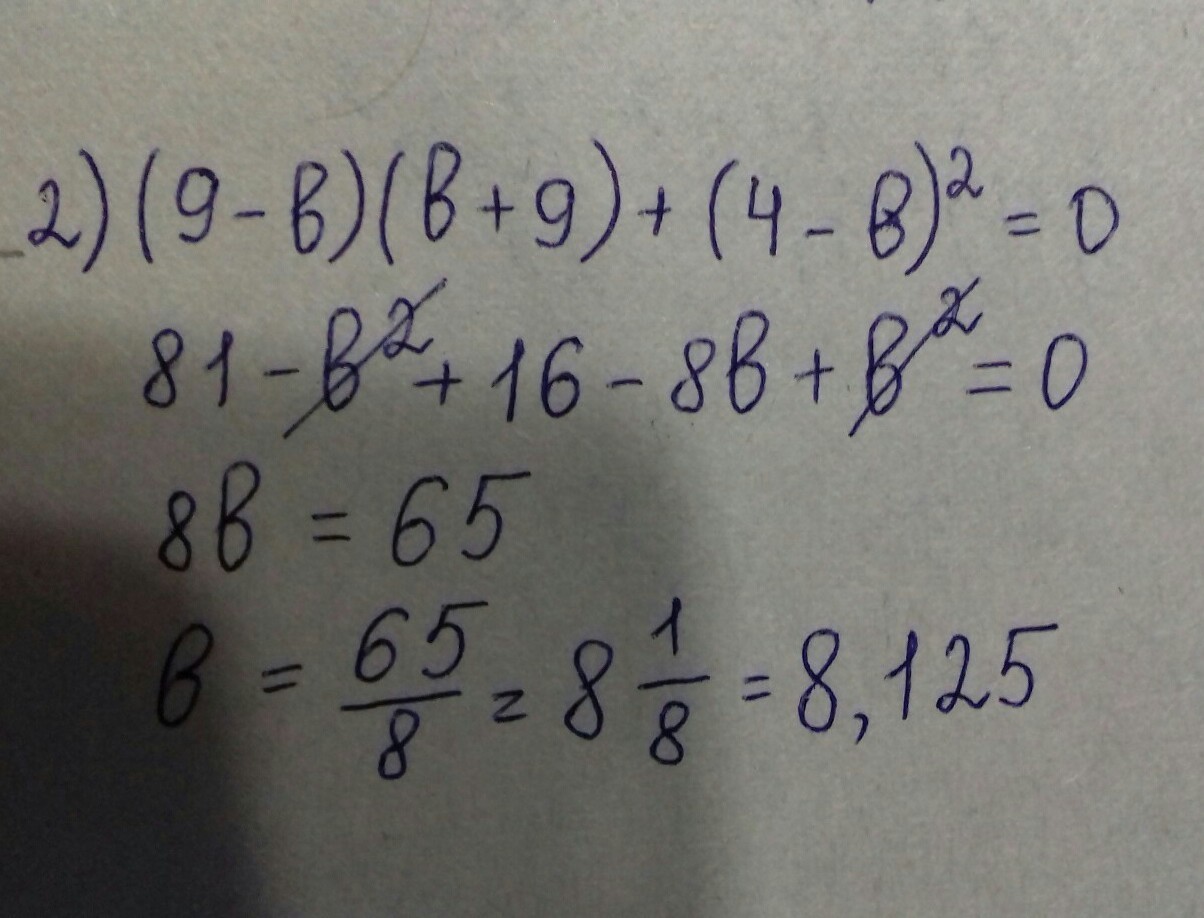 2) (9 - в)(в + 9) + (4 - в)² = 0
81 - в² + 16 - 8в + в² = 0
8в = 65
в = 65/8 = 8 1/8 = 8,125